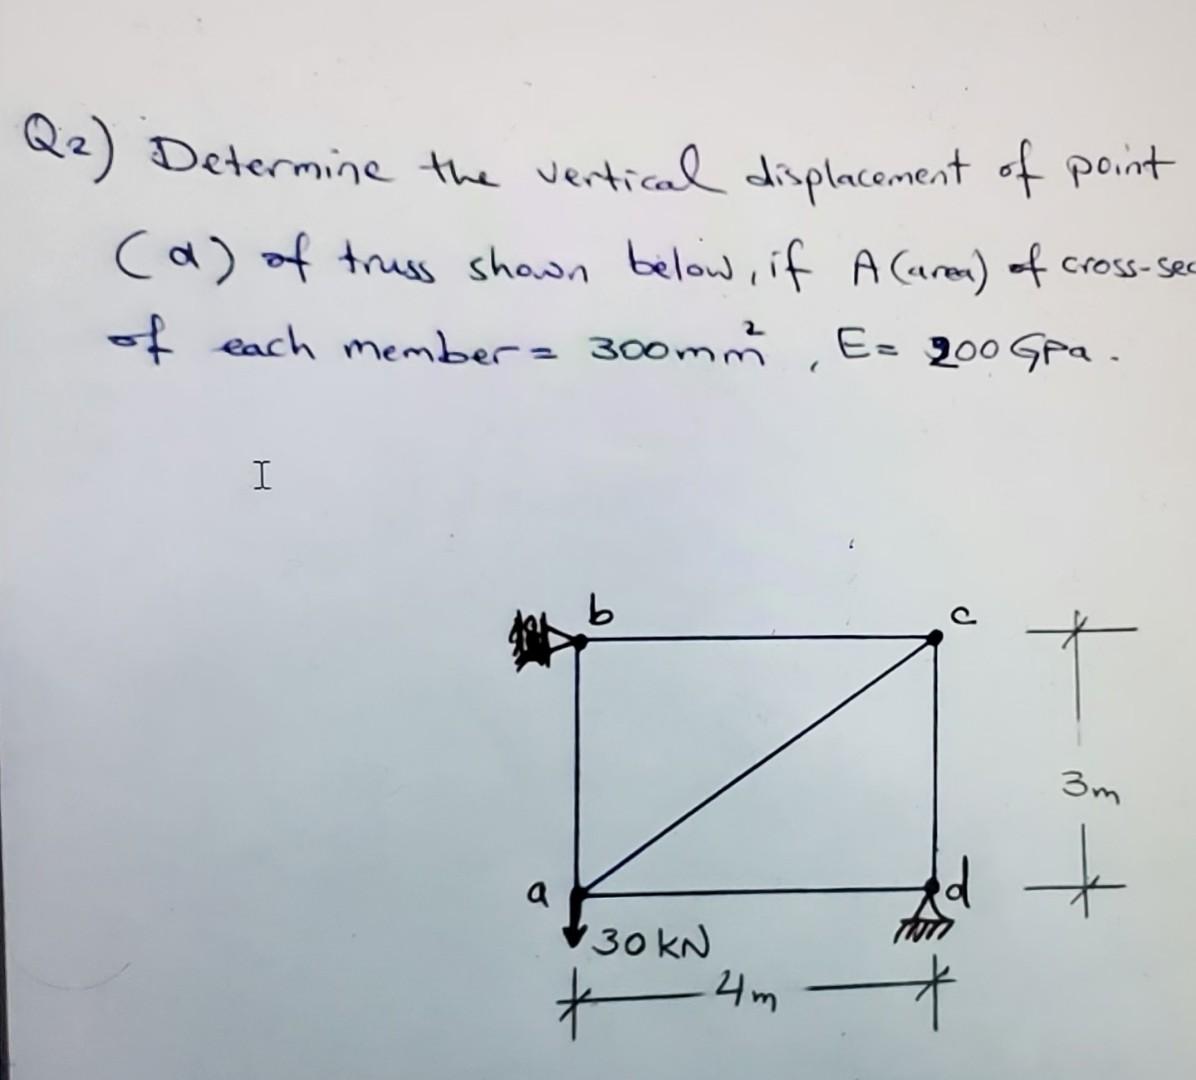 Q2) Determine the vertical displacement of point
(a) of truss shown below, if A (area) of cross-sec
of each member = 300mm², E= 200 GPa.
b
c
3m
a
d
30 kN
4m